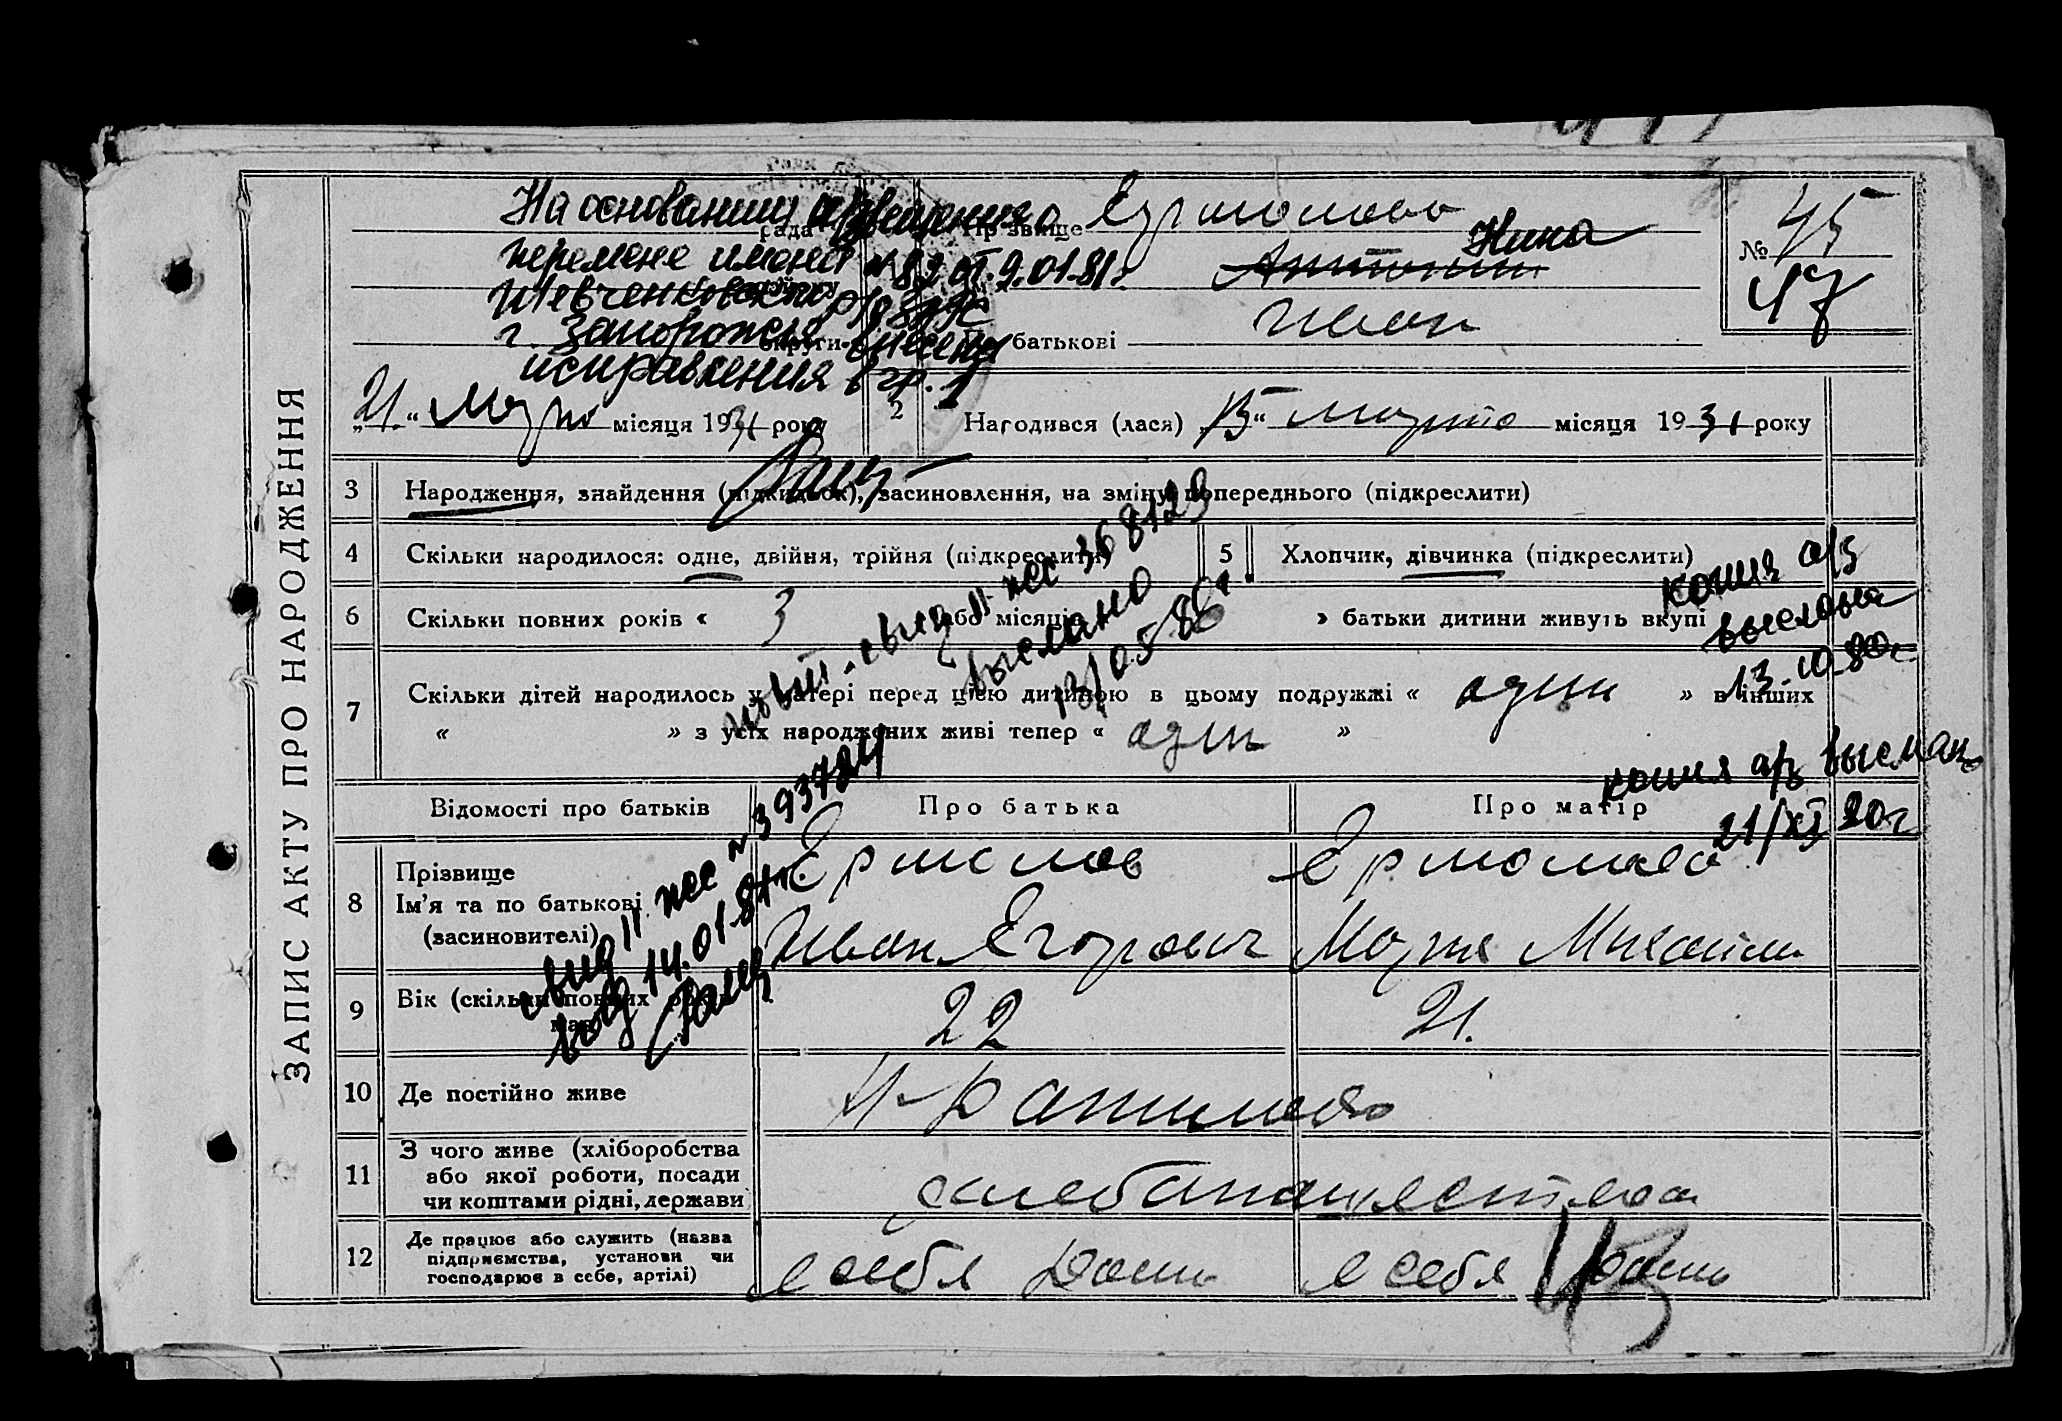 ЗАПИС АКТУ ПРО НАРОДЖЕННЯ
На основании извещения о
перемене имени № 82 от 9.01.81г.
Шевченковского р/о ЗАГС
г. Запорожья внесены
исправления в гр. 1
рада
округи
Прізвище Ермолова
Антонина Нина
По батькові Иван
№ 45
47
„21“ Марта місяця 1931 року
2 Народився (лася) „15“ марта місяця 1931 року
3 Народження, знайдення (підкидьок), засиновлення, на зміну попереднього (підкреслити)
4 Скільки народилося: одне, двійня, трійня (підкреслити)
5 Хлопчик, дівчинка (підкреслити)
6 Скільки повних років « 3 або місяців » батьки дитини живуть вкупі
копия а/з
выслана
13.10.80г
7 Скільки дітей народилось у матері перед цією дитиною в цьому подружжі « один » в інших
« » з усіх народжених живі тепер « один »
новый свид II ЖС 368123
выслано
12/05 86г
копия а/з выслано
21/XI 80г
Відомості про батьків Про батька Про матір
8 Прізвище
Ім'я та по батькові
(засиновителі)
Ермолов
Иван Егорович
Ермолова
Мария Михайл
свид II ЖС № 393784
14.01.81г.
9 Вік (скільки повних 22 21.
10 Де постійно живе
11 З чого живе (хліборобства
або якої роботи, посади
чи коштами рідні, держави
хлебопашеством
12 Де працює або служить (назва
підприємства, установи чи
господарює в себе, артілі)
в себя в себя